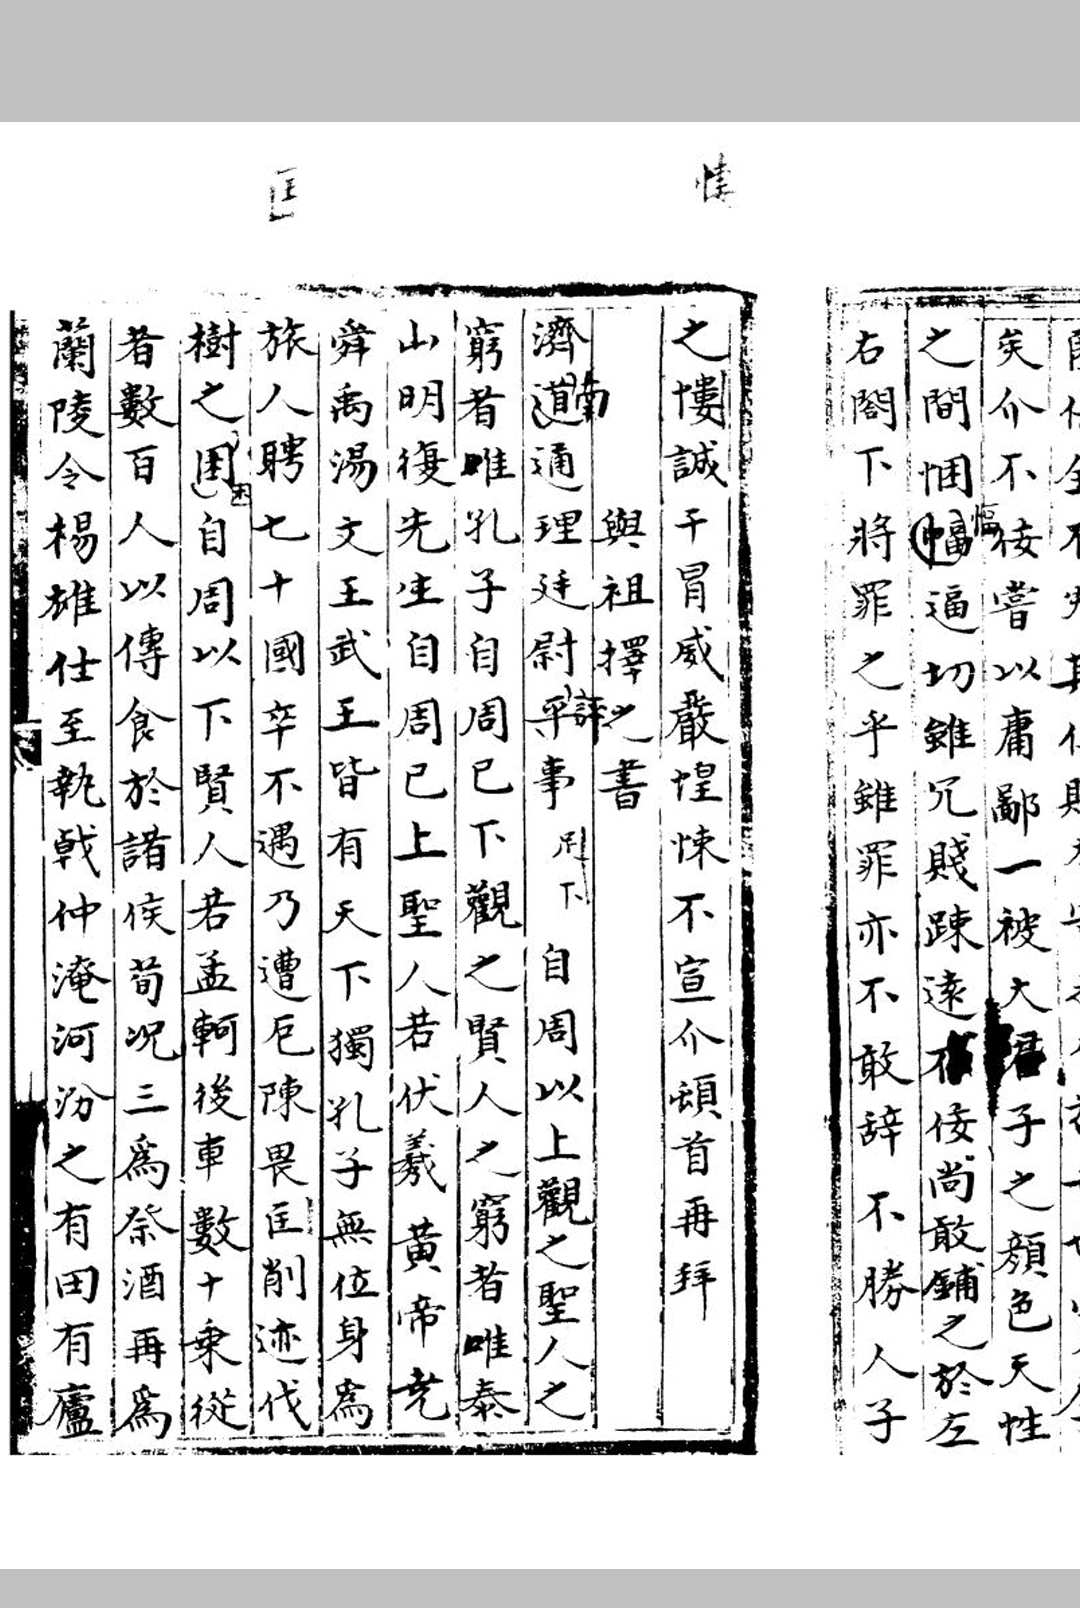 矣介不佞嘗以庸鄙一被大君子之顏色天性
之間悃愊逼切雖冗賤踈遠不佞尚敢鋪之於左
愊
右閤下將罪之乎雖罪亦不敢辞不勝人子
之悽誠干冒威嚴惶悚不宣介頓首再拜
與祖擇之書
濟道通理廷尉平事足下自周以上觀之聖人之
南
評
窮者唯孔子自周已下觀之賢人之窮者唯泰
山明復先生自周已上聖人若伏羲黃帝尭
舜禹湯文王武王皆有天下獨孔子無位身爲
旅人聘七十國卒不遇乃遭戹陳畏匡削迹伐
樹之困自周以下賢人若孟軻後車數十乗從
困
者數百人以傳食於諸侯荀况三爲祭酒再爲
蘭陵令楊雄仕至執戟仲淹河汾之有田有廬
匡